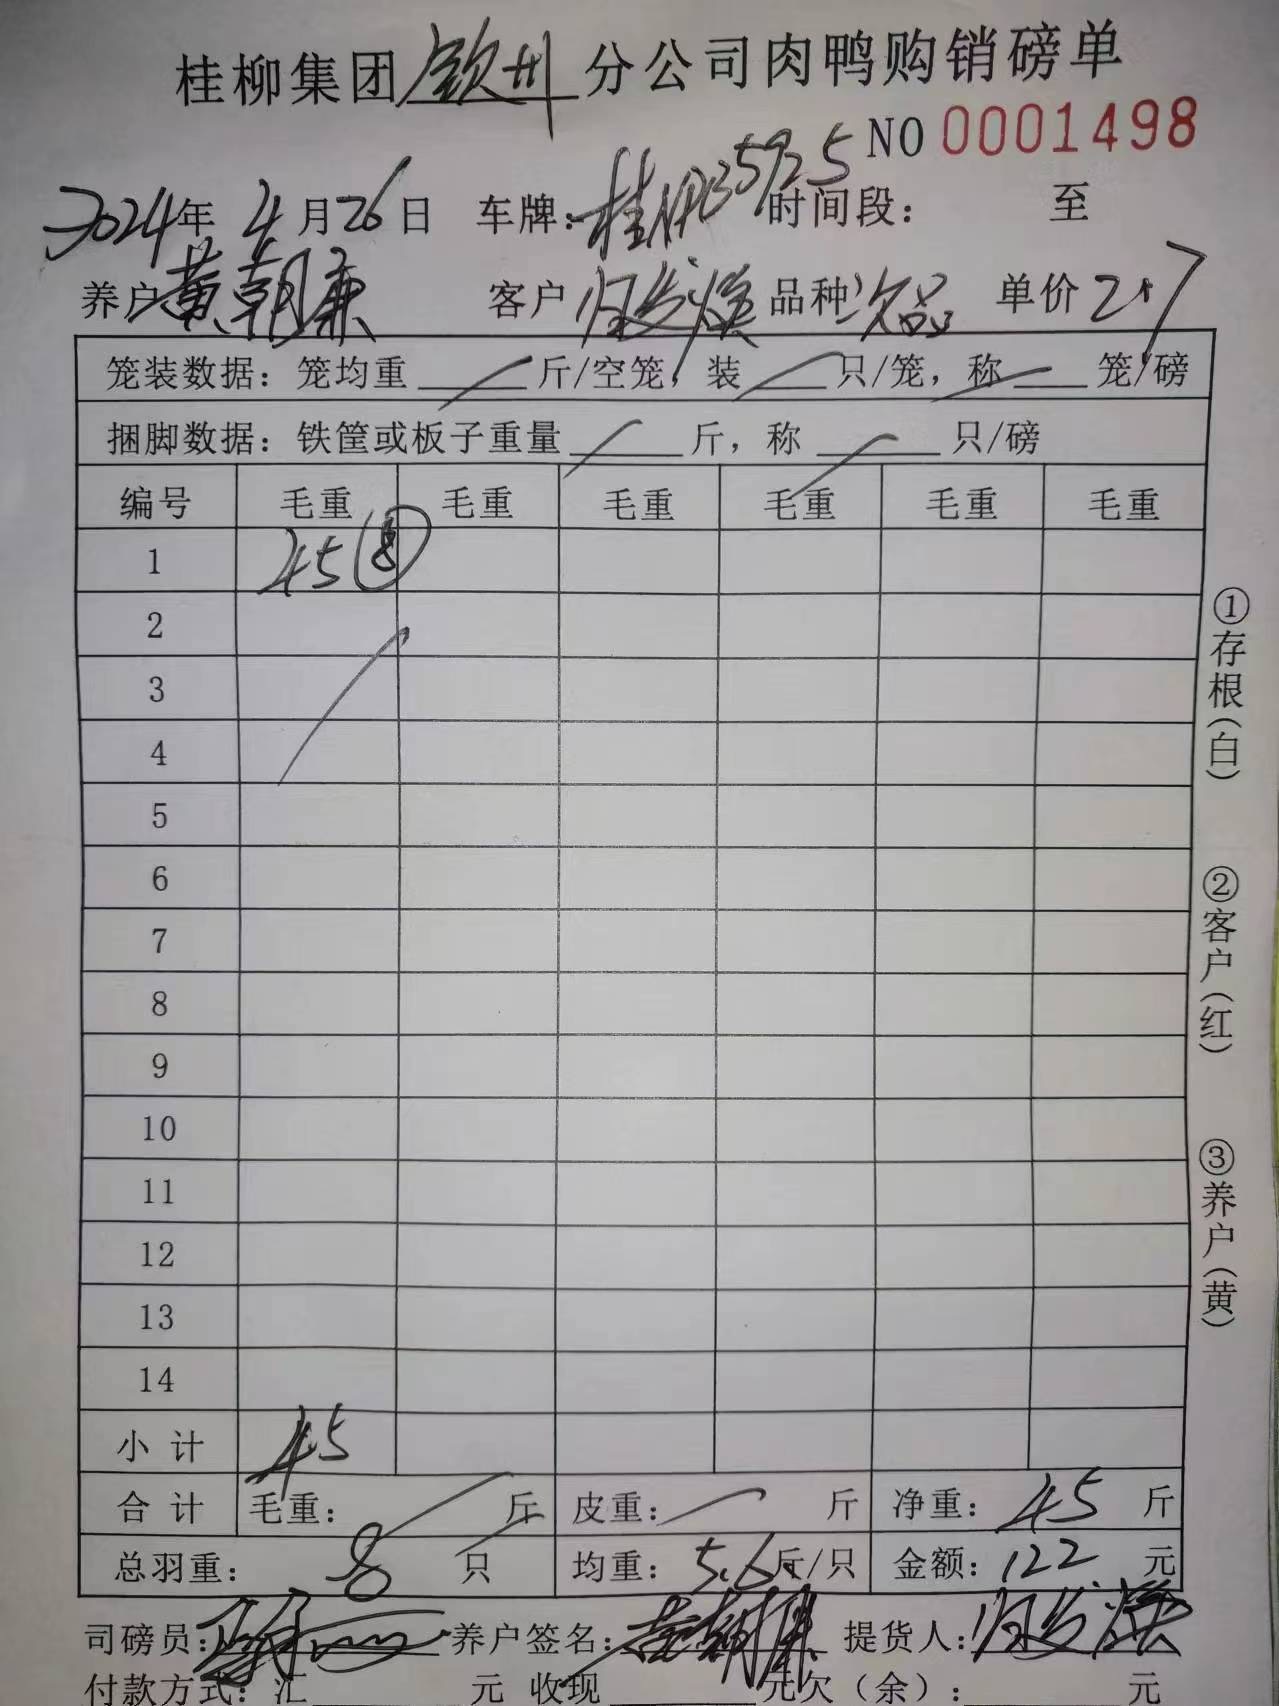 桂柳集团钦州分公司肉鸭购销磅单
NO 0001498
2024年 4月26日 车牌：桂 35925 时间段： 至
养户 黄朝康 客户 归发焕 品种 次品 单价 2.7
笼装数据：笼均重 斤/空笼，装 只/笼，称 笼/磅
捆脚数据：铁筐或板子重量 斤，称 只/磅
编号 毛重 毛重 毛重 毛重 毛重 毛重
1 45 ⑧
2
3
4
5
6
7
8
9
10
11
12
13
14
小计 45
合计 毛重： 斤 皮重： 斤 净重：45 斤
总羽重：8 只 均重：5.6 斤/只 金额：122 元
司磅员： 养户签名： 提货人：归发焕
付款方式：汇 元 收现 元欠（余）： 元
①存根（白）
②客户（红）
③养户（黄）